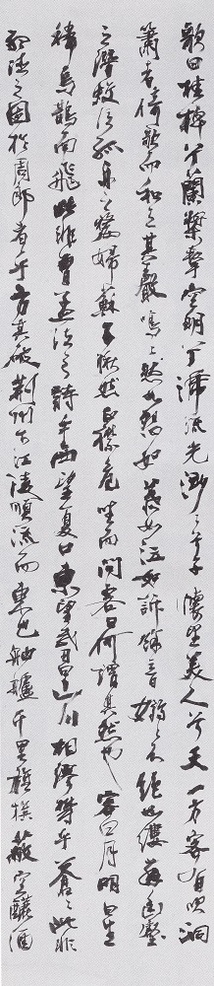 歌曰桂棹兮蘭槳擊空明兮泝流光渺渺兮予懷望美人兮天一方客有吹洞
簫者倚歌而和之其聲嗚嗚然如怨如慕如泣如訴餘音嫋嫋不絕如縷舞幽壑
之潛蛟泣孤舟之嫠婦蘇子愀然正襟危坐而問客曰何謂其然也客曰月明星
稀烏鵲南飛此非曹孟德之詩乎西望夏口東望武昌山川相繆鬱乎蒼蒼此非
孟德之困於周郎者乎方其破荊州下江陵順流而東也舳艫千里旌旗蔽空釃酒